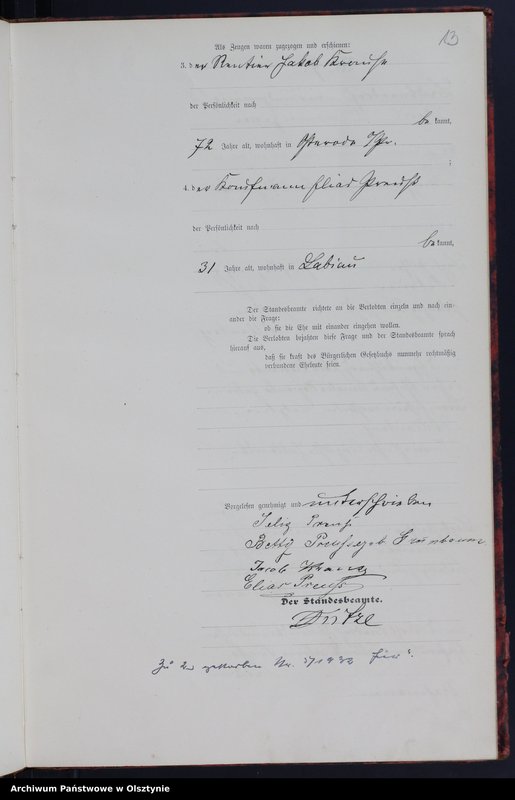 13
Als Zeugen waren zugezogen und erschienen:
3. der Rentier Jakob
der Persönlichkeit nach
be kannt,
72 Jahre alt, wohnhaft in Osterode O/Pr.
;
4. der Kaufmann Elias Preuß
der Persönlichkeit nach
be kannt,
31 Jahre alt, wohnhaft in Labiau
Der Standesbeamte richtete an die Verlobten einzeln und nach ein-
ander die Frage:
ob sie die Ehe mit einander eingehen wollen.
Die Verlobten bejahten diese Frage und der Standesbeamte sprach
hierauf aus,
daß sie kraft des Bürgerlichen Gesetzbuchs nunmehr rechtmäßig
verbundene Eheleute seien.
Vorgelesen, genehmigt und unterschrieben
Preuß
Betty Preuss geb. Grünbaum
Jacob
Elias Preuß
Der Standesbeamte.
Zu 2 gestorben Nr.
Archiwum Państwowe w Olsztynie